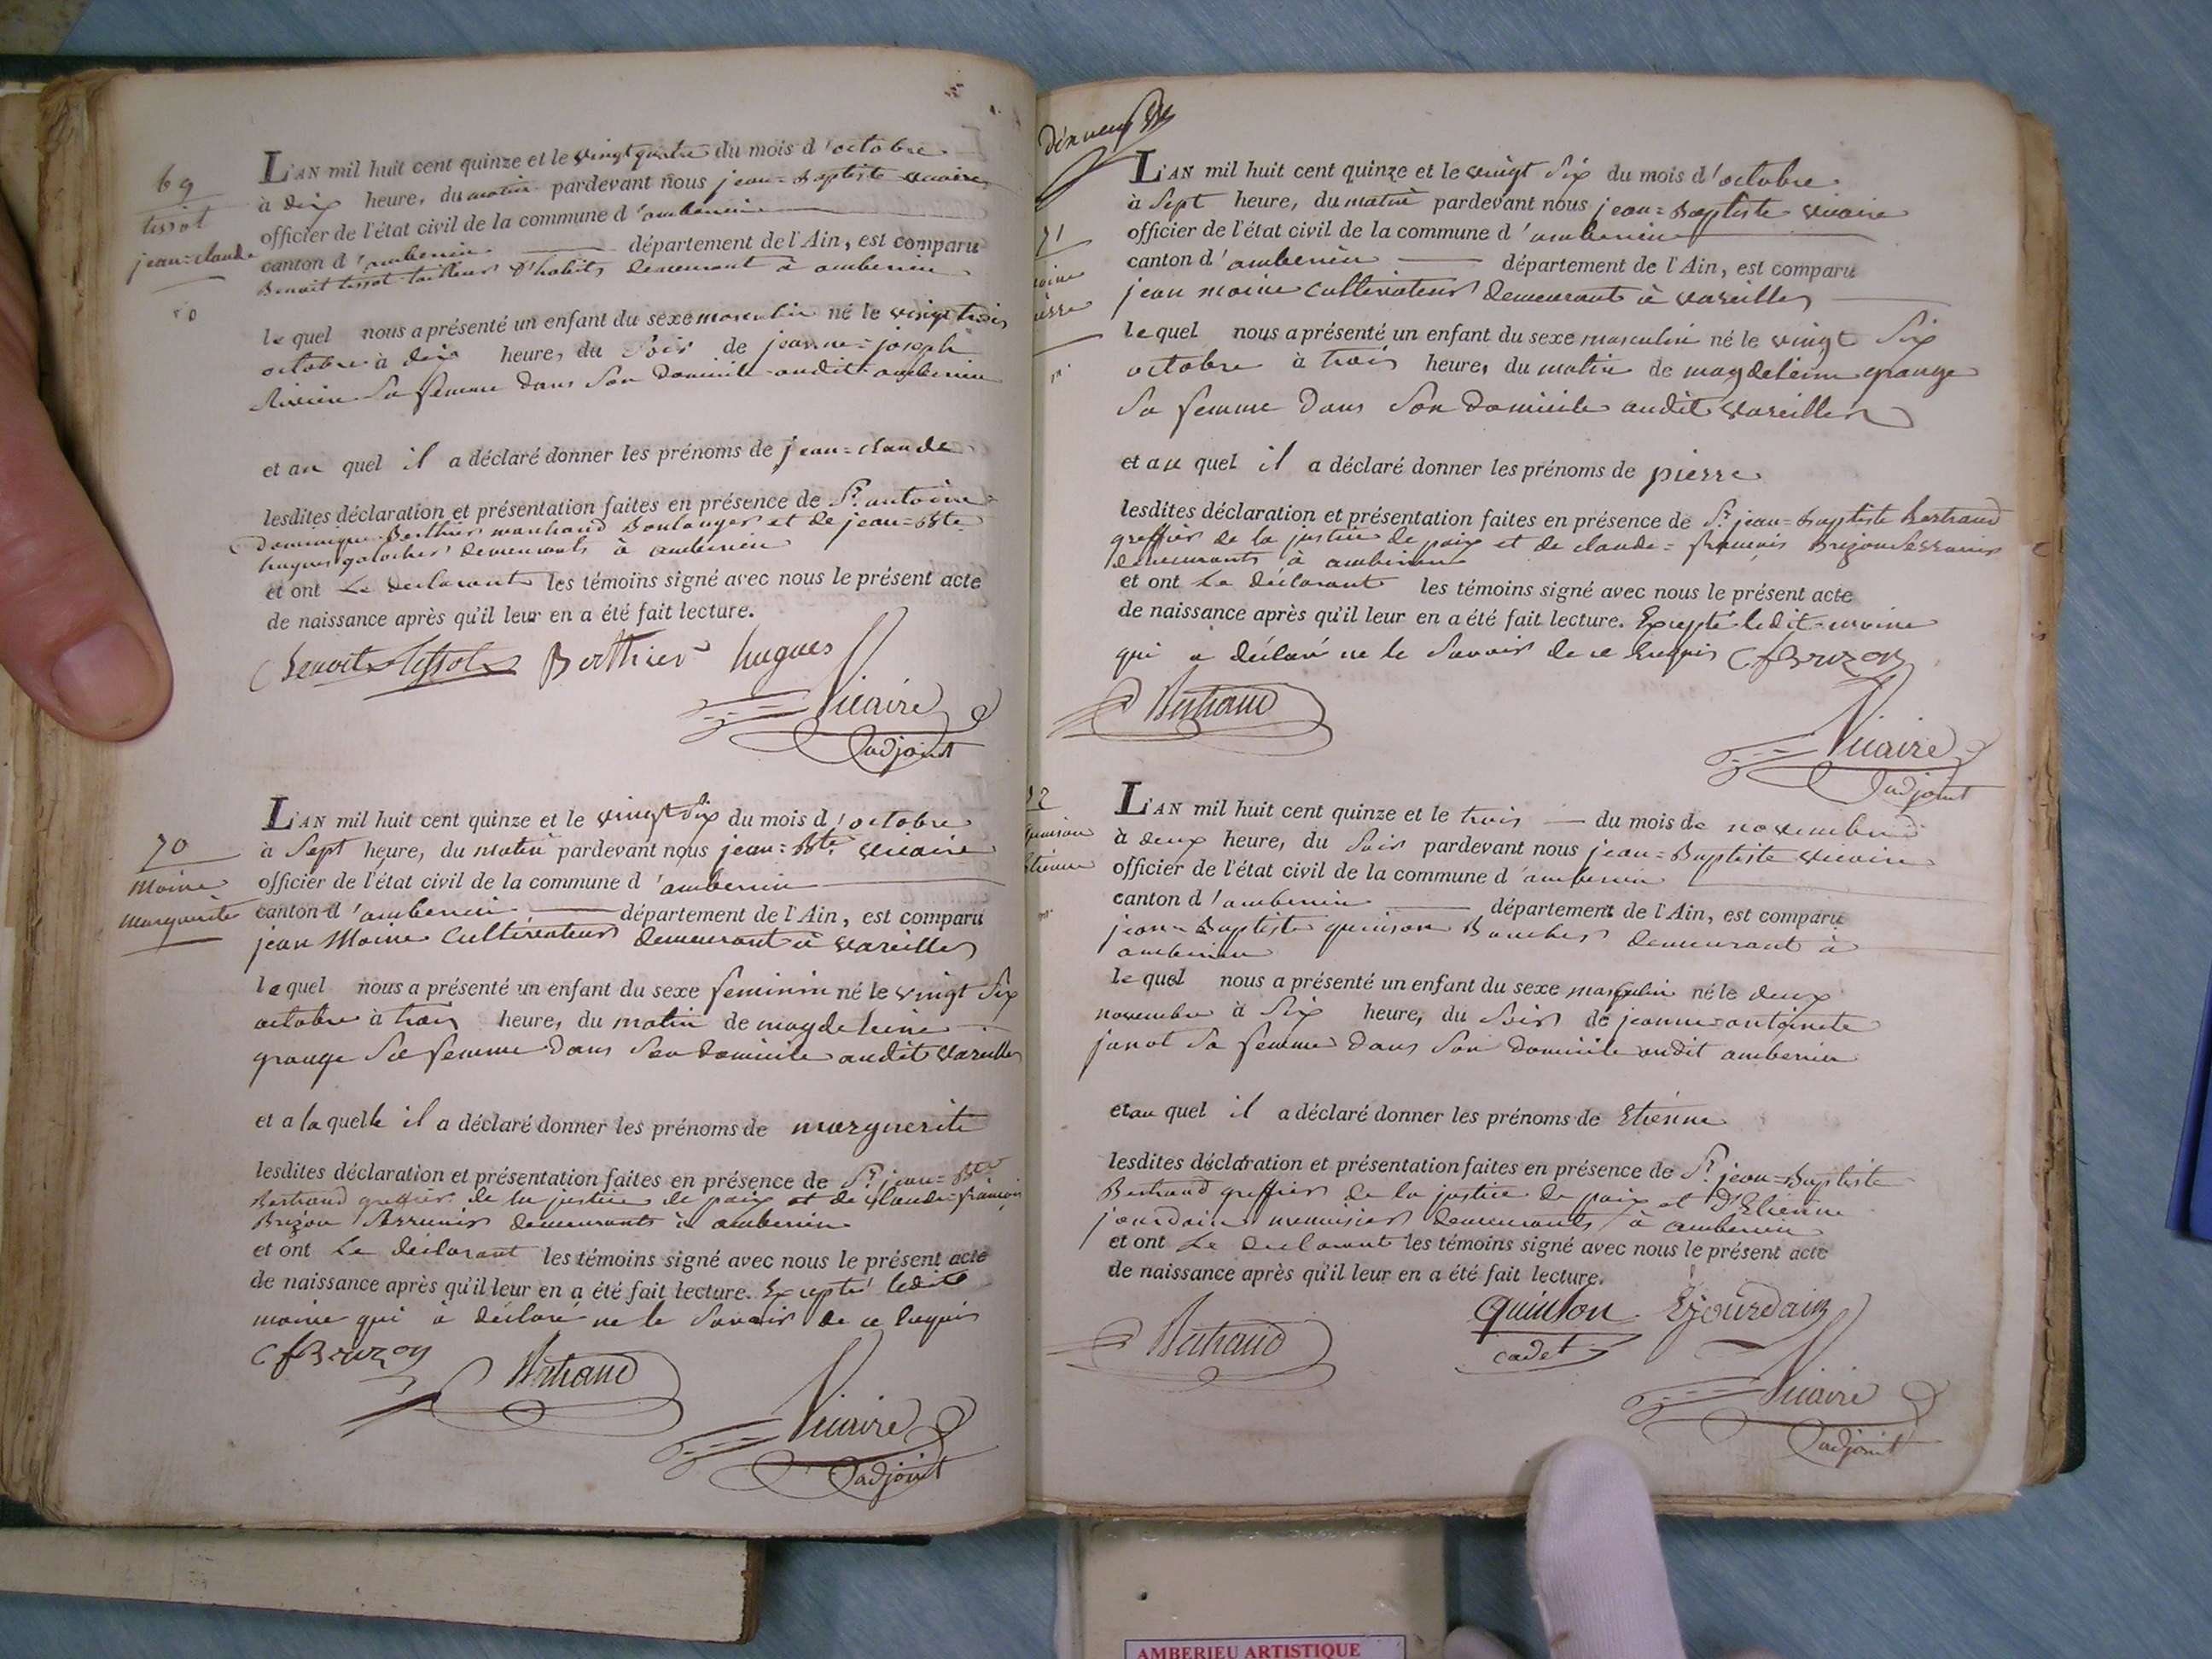 69
tissot
jean=claude
L'AN mil huit cent quinze et le vingt quatre du mois d'octobre
à dix heure, du matin pardevant nous jean=Baptiste vicaire
officier de l'état civil de la commune d'amberieu
canton d'amberieu département de l'Ain, est comparu
Benoit tissot tailleur d'habits demeurant à amberieu
le quel nous a présenté un enfant du sexe masculin né le vingt trois
octobre à dix heure, du soir de jeanne=joseph
sa femme dans son domicile audit amberieu
et au quel il a déclaré donner les prénoms de jean=claude
lesdites déclaration et présentation faites en présence de Sr. antoine
dominique Berthier marchand Boulanger et de jean=Bte
hugues galocher demeurants à amberieu
et ont Le declarant les témoins signé avec nous le présent acte
de naissance après qu'il leur en a été fait lecture.
Benoit tissot Berthier hugues
Vicaire
adjoint
70
Moine
Marguerite
L'AN mil huit cent quinze et le vingt six du mois d'octobre
à sept heure, du matin pardevant nous jean=Bte vicaire
officier de l'état civil de la commune d'amberieu
canton d'amberieu département de l'Ain, est comparu
jean Moine Cultivateur demeurant à vareilles
la quel nous a présenté un enfant du sexe feminin né le vingt six
octobre à trois heure, du matin de magdeleine
grange sa femme dans son domicile audit vareilles
et a la quelle il a déclaré donner les prénoms de marguerite
lesdites déclaration et présentation faites en présence de Sr. jean=Bte
Bertrand greffier de la justice de paix et de claude=françois
Brizon serrurier demeurants à amberieu
et ont Le déclarant les témoins signé avec nous le présent acte
de naissance après qu'il leur en a été fait lecture. Excepté ledit
moine qui a déclaré ne le savoir de ce requis
CfBrizon
Bertrand
Vicaire
adjoint
dix neuf
71
moine
pierre
L'AN mil huit cent quinze et le vingt six du mois d'octobre
à sept heure, du matin pardevant nous jean=Baptiste vicaire
officier de l'état civil de la commune d'amberieu
canton d'amberieu département de l'Ain, est comparu
jean moine Cultivateur demeurant à vareilles
le quel nous a présenté un enfant du sexe masculin né le vingt six
octobre à trois heure, du matin de magdeleine grange
sa femme dans son domicile audit vareilles
et au quel il a déclaré donner les prénoms de pierre
lesdites déclaration et présentation faites en présence de Sr. jean=Baptiste Bertrand
greffier de la justice de paix et de claude=françois Brizon serrurier
demeurants à amberieu
et ont Le déclarant les témoins signé avec nous le présent acte
de naissance après qu'il leur en a été fait lecture. Excepté ledit=moine
qui a déclaré ne le savoir de ce requis CfBrizon
Bertrand
Vicaire
adjoint
72
quinson
Etienne
L'AN mil huit cent quinze et le trois du mois de novembre
à deux heure, du soir pardevant nous jean=Baptiste vicaire
officier de l'état civil de la commune d'amberieu
canton d'amberieu département de l'Ain, est comparu
jean=Baptiste quinson Boucher demeurant à
amberieu
le quel nous a présenté un enfant du sexe masculin né le deux
novembre à six heure, du soir de jeanne=antoinete
janot sa femme dans son domicile audit amberieu
et au quel il a déclaré donner les prénoms de Etienne
lesdites déclaration et présentation faites en présence de Sr. jean=Baptiste
Bertrand greffier de la justice de paix et d'Etienne
jourdain menuisier demeurants à amberieu
et ont Le declarant les témoins signé avec nous le présent acte
de naissance après qu'il leur en a été fait lecture.
Bertrand quinson Ejourdain
cadet
Vicaire
adjoint
AMBERIEU ARTISTIQUE